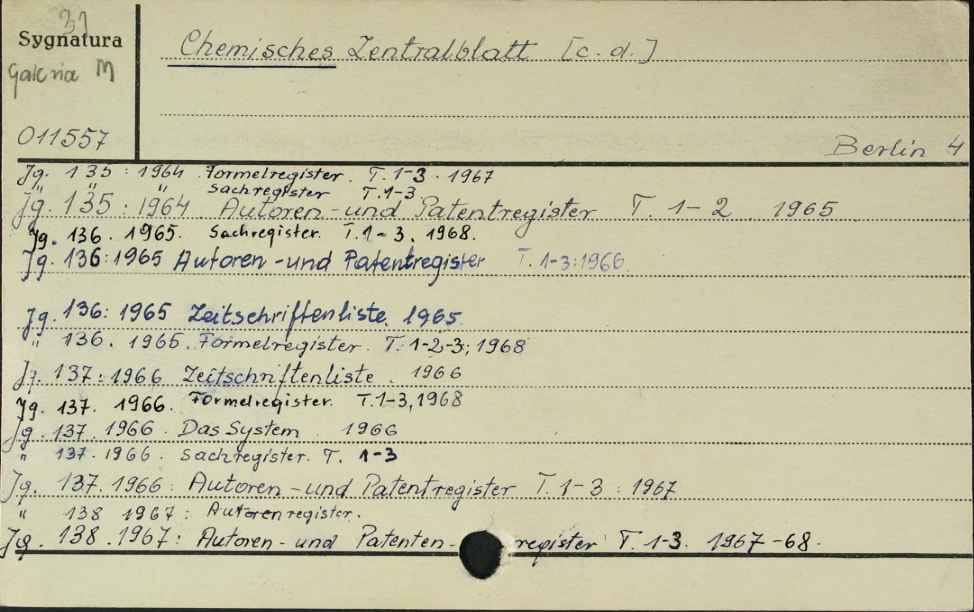 31
Sygnatura
Galeria M
011557
Chemisches Zentralblatt [c.d.]
Berlin 4
Jg. 135 : 1964 Formelregister. T. 1-3. 1967
" " " Sachregister T. 1-3
Jg. 135. 1964 Autoren-und Patentregister T. 1-2 1965
Jg. 136. 1965. Sachregister. T. 1-3. 1968.
Jg. 136:1965 Autoren-und Patentregister T. 1-3:1966
Jg. 136: 1965 Zeitschriftenliste. 1965.
" 136. 1965. Formelregister. T. 1-2-3; 1968
Jg. 137:1966 Zeitschriftenliste. 1966
Jg. 137. 1966. Formelregister. T. 1-3, 1968
Jg. 137. 1966. Das System. 1966
" 137. 1966. Sachregister. T. 1-3
Jg. 137. 1966: Autoren-und Patentregister T. 1-3 : 1967
" 138 1967: Autorenregister.
Jg. 138. 1967: Autoren-und Patenten-register T. 1-3. 1967-68.